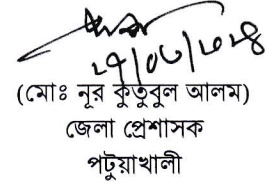 ২৭/০৬/২০২৪
(মোঃ নূর কুতুবুল আলম)
জেলা প্রেশাসক
পটুয়াখালী